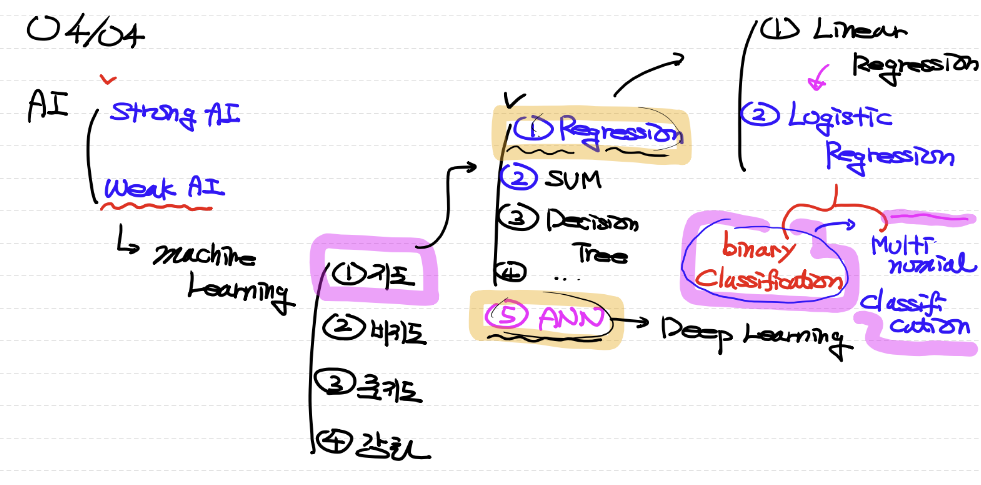 04/04
AI
Strong AI
Weak AI
machine
Learning
① 지도
② 비지도
③ 준지도
④ 강화
① Regression
② SVM
③ Decision
Tree
④ ...
⑤ ANN
Deep Learning
① Linear
Regression
② Logistic
Regression
binary
Classification
Multi
nomial
Classifi
cation